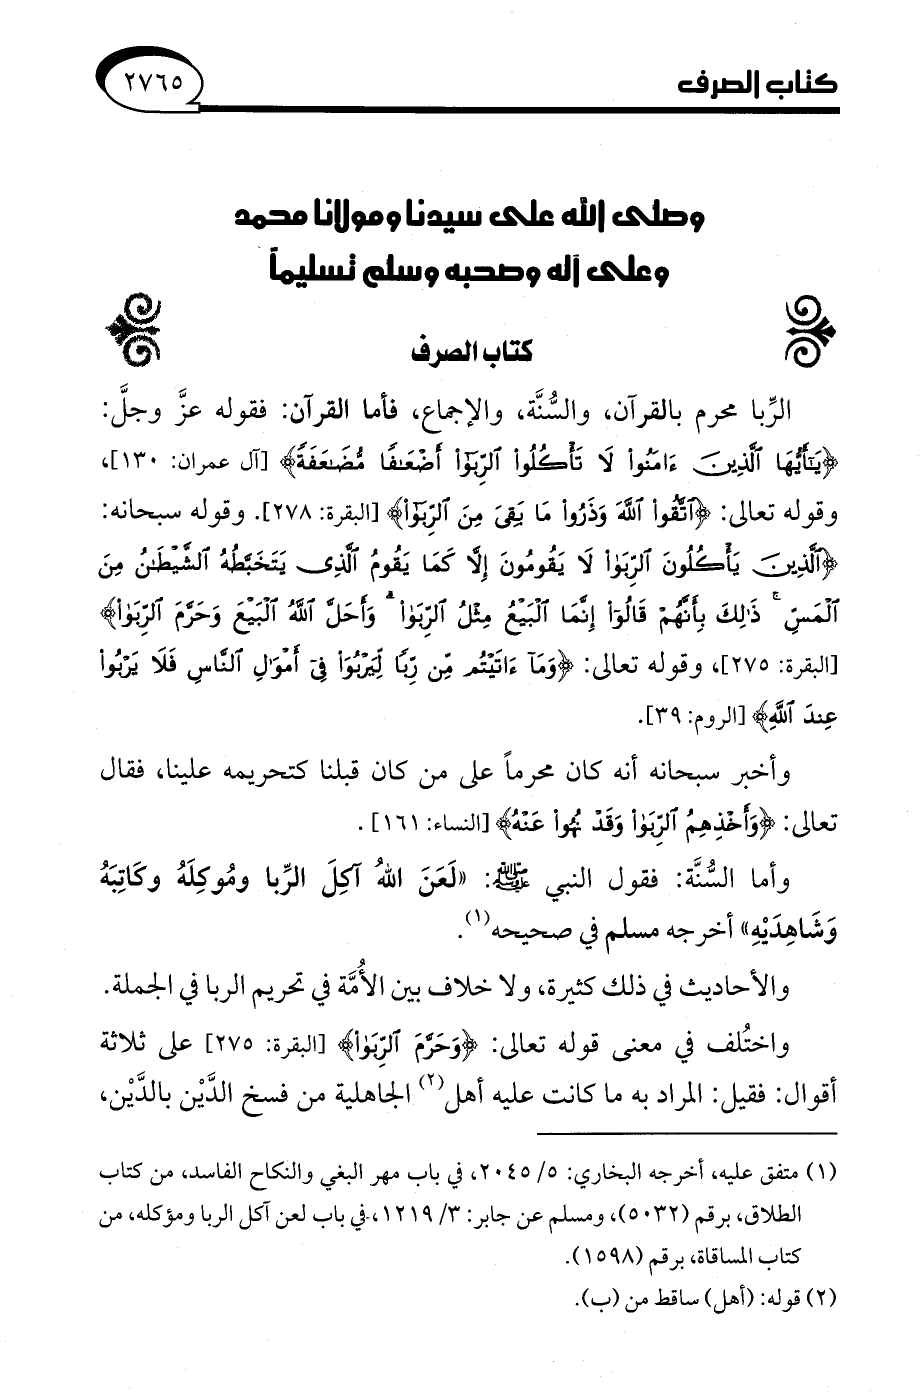 كتاب الصرف
٢٧٦٥
وصلى الله على سيدنا ومولانا محمد
وعلى آله وصحبه وسلم تسليماً
كتاب الصرف
الرِّبا محرم بالقرآن، والسُّنَّة، والإجماع، فأما القرآن: فقوله عزَّ وجلَّ:
﴿يَٰٓأَيُّهَا ٱلَّذِينَ ءَامَنُوا۟ لَا تَأْكُلُوا۟ ٱلرِّبَوٰٓا۟ أَضْعَٰفًا مُّضَٰعَفَةً﴾ [آل عمران: ١٣٠]،
وقوله تعالى: ﴿ٱتَّقُوا۟ ٱللَّهَ وَذَرُوا۟ مَا بَقِىَ مِنَ ٱلرِّبَوٰٓا۟﴾ [البقرة: ٢٧٨]. وقوله سبحانه:
﴿ٱلَّذِينَ يَأْكُلُونَ ٱلرِّبَوٰا۟ لَا يَقُومُونَ إِلَّا كَمَا يَقُومُ ٱلَّذِى يَتَخَبَّطُهُ ٱلشَّيْطَٰنُ مِنَ
ٱلْمَسِّ ۚ ذَٰلِكَ بِأَنَّهُمْ قَالُوٓا۟ إِنَّمَا ٱلْبَيْعُ مِثْلُ ٱلرِّبَوٰا۟ ۗ وَأَحَلَّ ٱللَّهُ ٱلْبَيْعَ وَحَرَّمَ ٱلرِّبَوٰا۟﴾
[البقرة: ٢٧٥]، وقوله تعالى: ﴿وَمَآ ءَاتَيْتُم مِّن رِّبًا لِّيَرْبُوَا۟ فِىٓ أَمْوَٰلِ ٱلنَّاسِ فَلَا يَرْبُوا۟
عِندَ ٱللَّهِ﴾ [الروم: ٣٩].
وأخبر سبحانه أنه كان محرماً على من كان قبلنا كتحريمه علينا، فقال
تعالى: ﴿وَأَخْذِهِمُ ٱلرِّبَوٰا۟ وَقَدْ نُهُوا۟ عَنْهُ﴾ [النساء: ١٦١] .
وأما السُّنَّة: فقول النبي ﷺ: «لَعَنَ اللهُ آكِلَ الرِّبا ومُوكِلَهُ وكَاتِبَهُ
وَشَاهِدَيْهِ» أخرجه مسلم في صحيحه(١).
والأحاديث في ذلك كثيرة، ولا خلاف بين الأُمَّة في تحريم الربا في الجملة.
واختُلف في معنى قوله تعالى: ﴿وَحَرَّمَ ٱلرِّبَوٰا۟﴾ [البقرة: ٢٧٥] على ثلاثة
أقوال: فقيل: المراد به ما كانت عليه أهل(٢) الجاهلية من فسخ الدَّيْن بالدَّيْن،
(١) متفق عليه، أخرجه البخاري: ٥/ ٢٠٤٥، في باب مهر البغي والنكاح الفاسد، من كتاب
الطلاق، برقم (٥٠٣٢)، ومسلم عن جابر: ٣/ ١٢١٩، في باب لعن آكل الربا ومؤكله، من
كتاب المساقاة، برقم (١٥٩٨).
(٢) قوله: (أهل) ساقط من (ب).